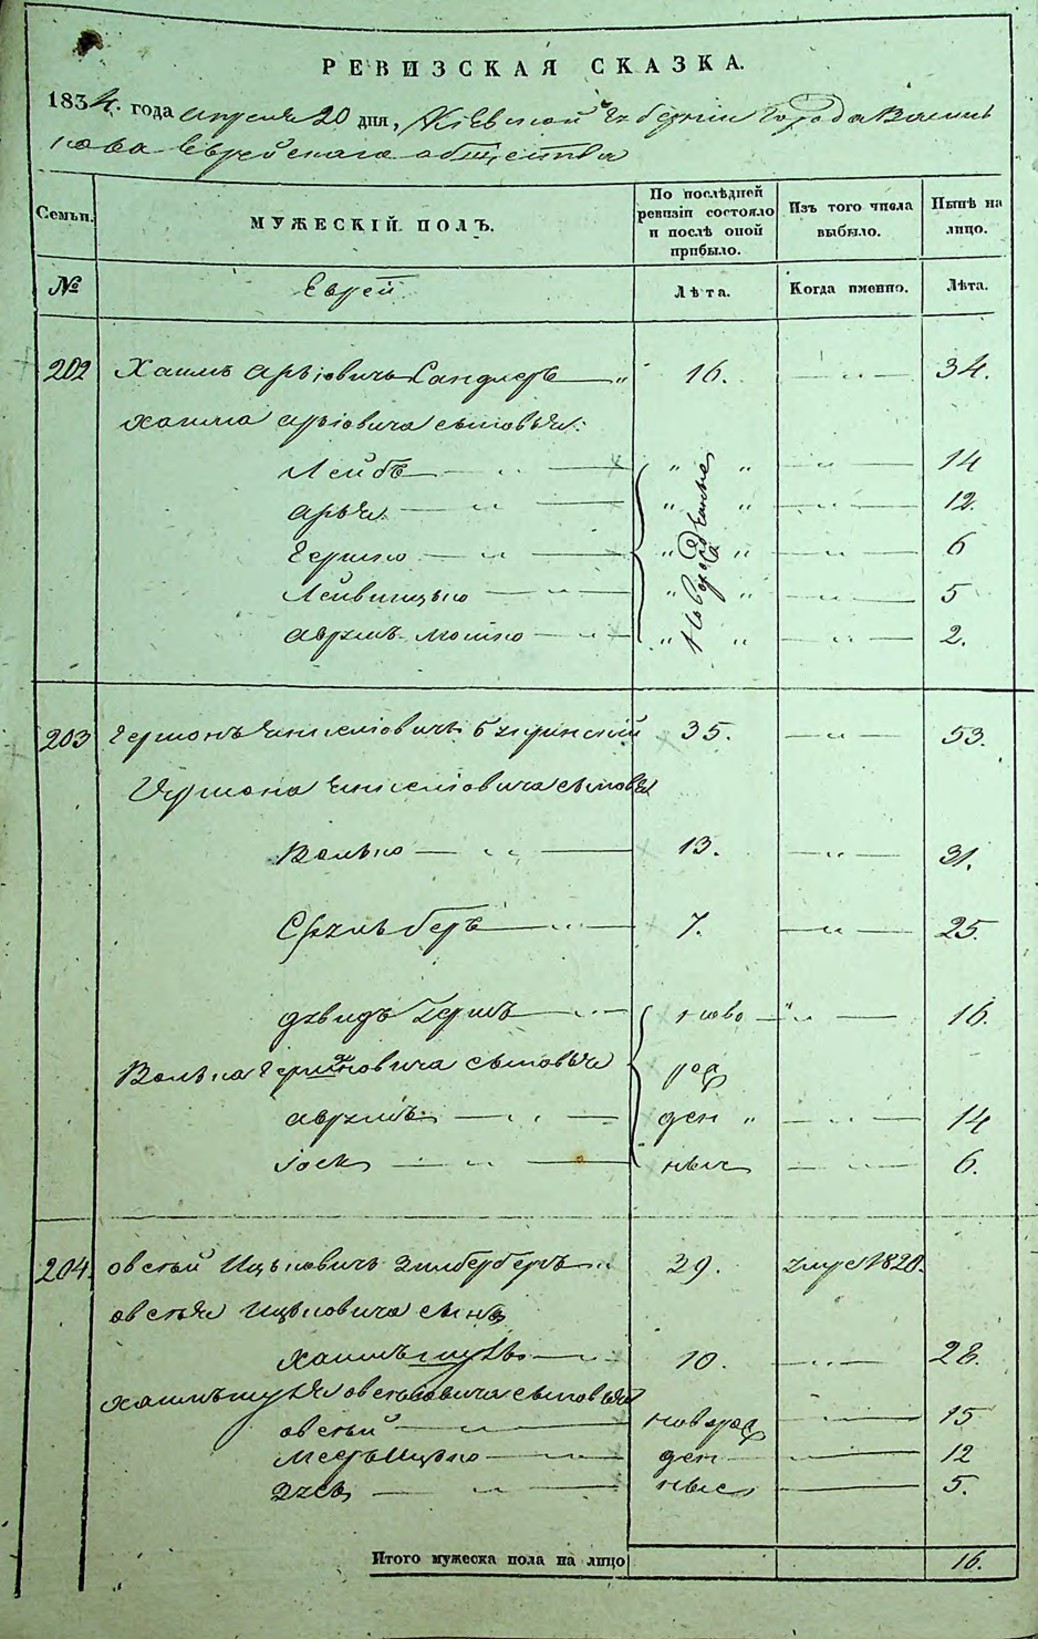 РЕВИЗСКАЯ СКАЗКА.
1834. года апреля 20 дня, Киевской Губернии Города Василь
кова Еврейскаго общества
Семьи. МУЖЕСКІЙ ПОЛЪ. По послѣдней ревизіи состояло и послѣ оной прибыло. Изъ того числа выбыло. Нынѣ на лицо.
№ Еврей Лѣта. Когда именно. Лѣта.
202 Хаимъ Арьіовичь Сандлеръ 16. 34.
Хаима Арьіовича сыновья:
новорожденные
Лейбъ 14
Арья 12.
Гершко 6
Лейвицько 5
Аврумъ Мошко 2.
203 Гершонъ 35. 53.
Гершона сыновья
Волько 13. 31.
Сруль беръ 7. 25.
Дувидъ Гершъ ново 16.
Волька Гершоновича сыновья рож
Аврумъ ден 14
Іось ные 6.
204. Овсей Ицьковичь Зильбербергъ 29. умре 1820.
Овсея Ицьковича сынъ
Хаимъ 10. 28.
Овсеевича сыновья
Овсей новорож 15
Мееръ Ицько ден 12
Зусь ные 5.
Итого мужеска пола на лицо 16.